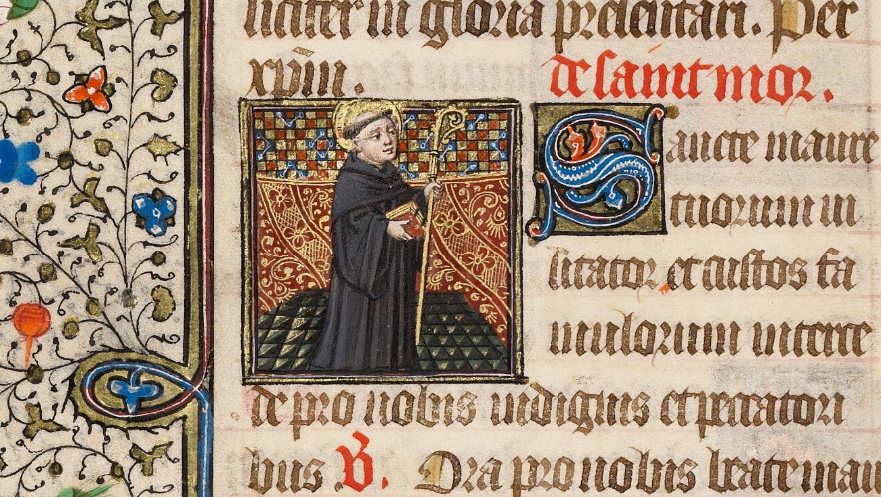 liciter in gloria presentari. Per
xp̄m.
de saint mor.
Sancte maure
tuorum in
litator et custos fa
mulorum interce
de pro nobis indignis et peccatori
bus B. Ora pro nobis beate mau